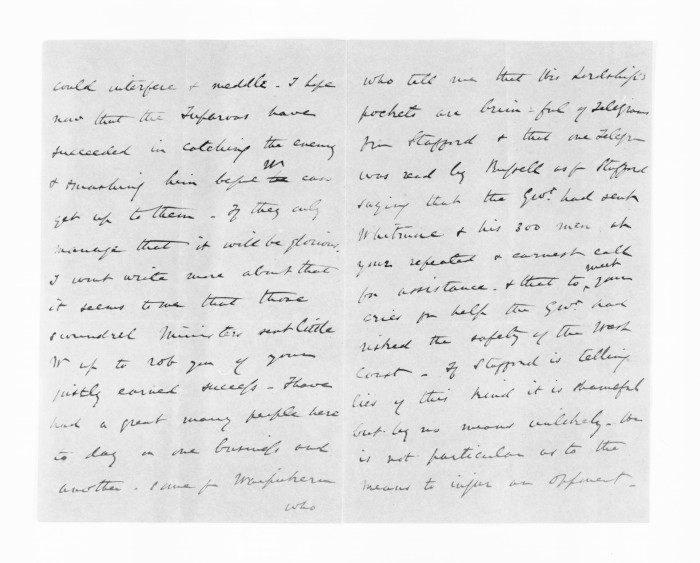 could interfere & meddle - I hope
now that the Tuparoas have
succeeded in catching the enemy
& smashing him before W can
get up to them - If they only
manage that it will be glorious.
I wont write more about that
it seems to me that those
scoundrel Ministers sent little
W up to rob you of your
justly earned success - I have
had a great many people here
to day on one business and
another - some fr Waipukurau
who
who tell me that his Lordship's
pockets are brim-ful of Telegrams
from Stafford & that one Telegm
was read by Russell as fr Stafford
saying that the Govt. had sent
Whitmore & his 300 men at
your repeated & earnest call
for assistance - & that to meet your
cries for help the Govt. had
risked the safety of the West
Coast - If Stafford is telling
lies of this kind it is shameful
but by no means unlikely - He
is not particular as to the
means to injure an opponent -